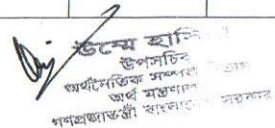 উম্মে হা
উপসচিব
অর্থনৈতিক সম্পর্ক বিভাগ
অর্থ মন্ত্রণালয়
গণপ্রজাতন্ত্রী বাংলাদেশ সরকার